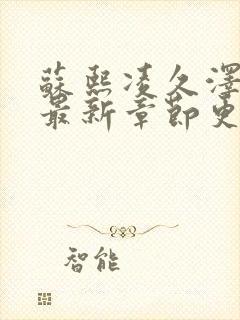 蘇熙凌久澤
最新章節更
智能